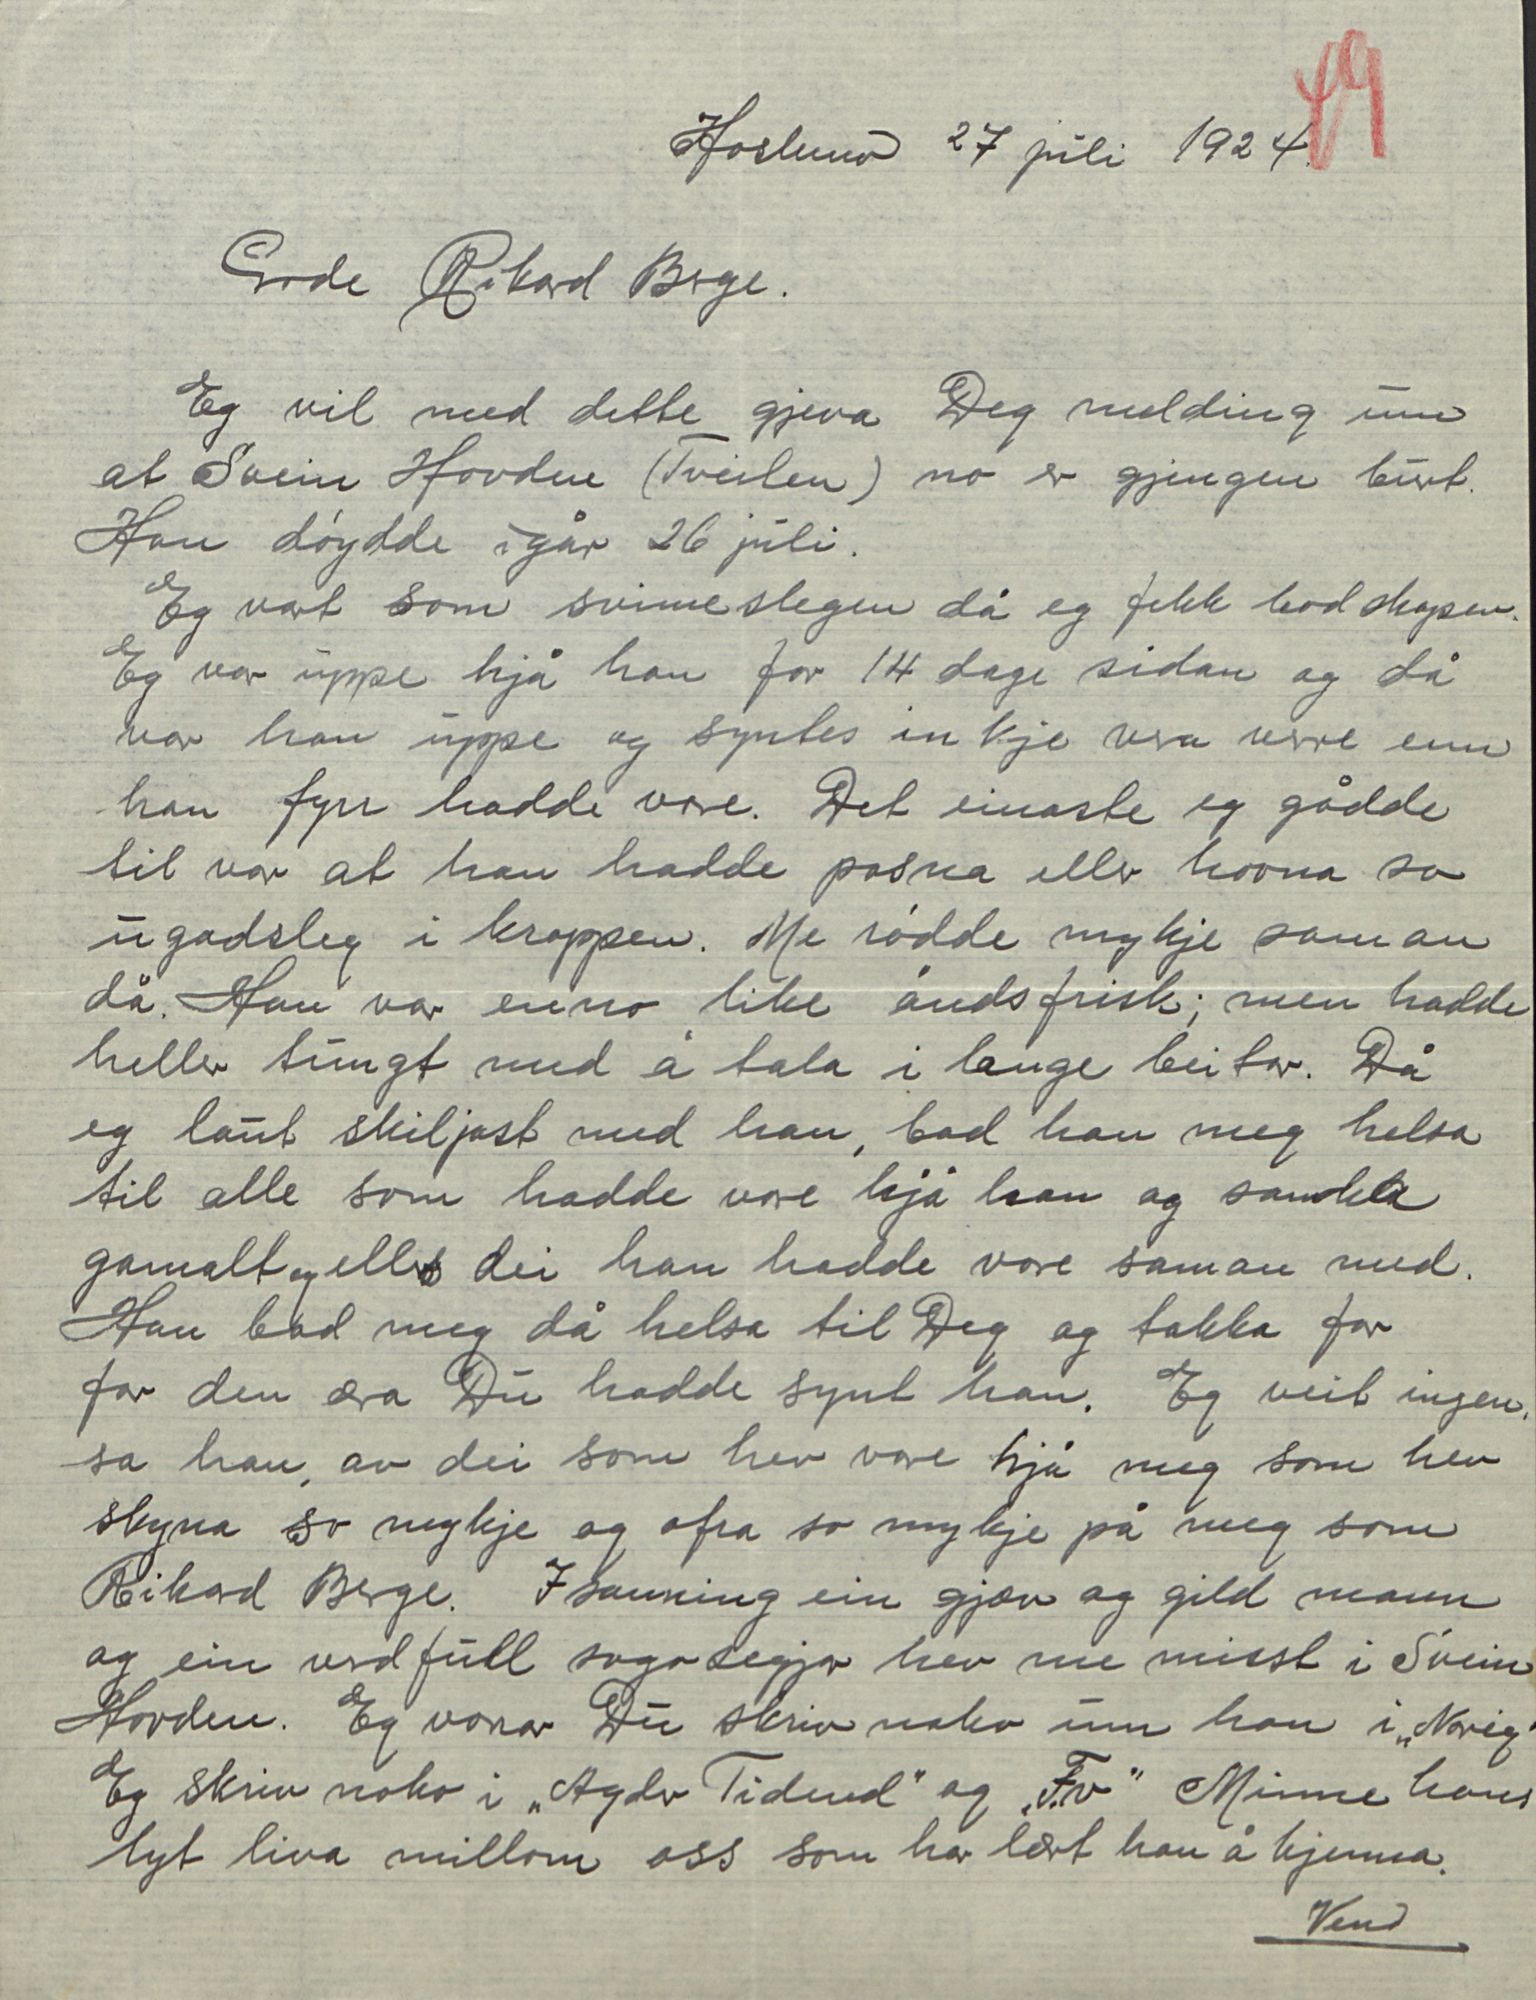 Hoslund 27 juli 1924.
Erde Rikard Berge.
Eg vil med dette gjeva Deg melding um
at Svein Hovden (Tveiten) no er gjengen burt.
Han döydde igår 26 juli.
Eg vart som svimeslegen då eg fekk bodskapen.
Eg var uppe hjå han for 14 dage sidan og då
var han uppe og syntes inkje vera verre enn
han fyrr hadde vore. Det einaste eg gådde
til var at han hadde posna eller hovna so
ugodsleg i kroppen. Me rødde mykje saman
då. Han var enno like åndsfrisk; men hadde
heller tungt med å tala i lange beitar. Då
eg laut skiljast med han, bad han meg helsa
til alle som hadde vore hjå han og samkla
gamalt og ellers dei han hadde vore saman med.
Han bad meg då helsa til Deg og takka for
for den æra Du hadde synt han. Eg veit ingen,
sa han, av dei som hev vore hjå meg som hev
skyna so mykje og ofra so mykje på meg som
Rikard Berge. I sanning ein gjæv og gild mann
og ein verdfull sogosegjar hev me misst i Svein
Hovden. Eg vonar Du skriv noko um han i „Norig"
Eg skriv noko i „Agder Tidend" og „F.v" Minne hans
lyt liva millom oss som har lært han å kjenna.
Vend